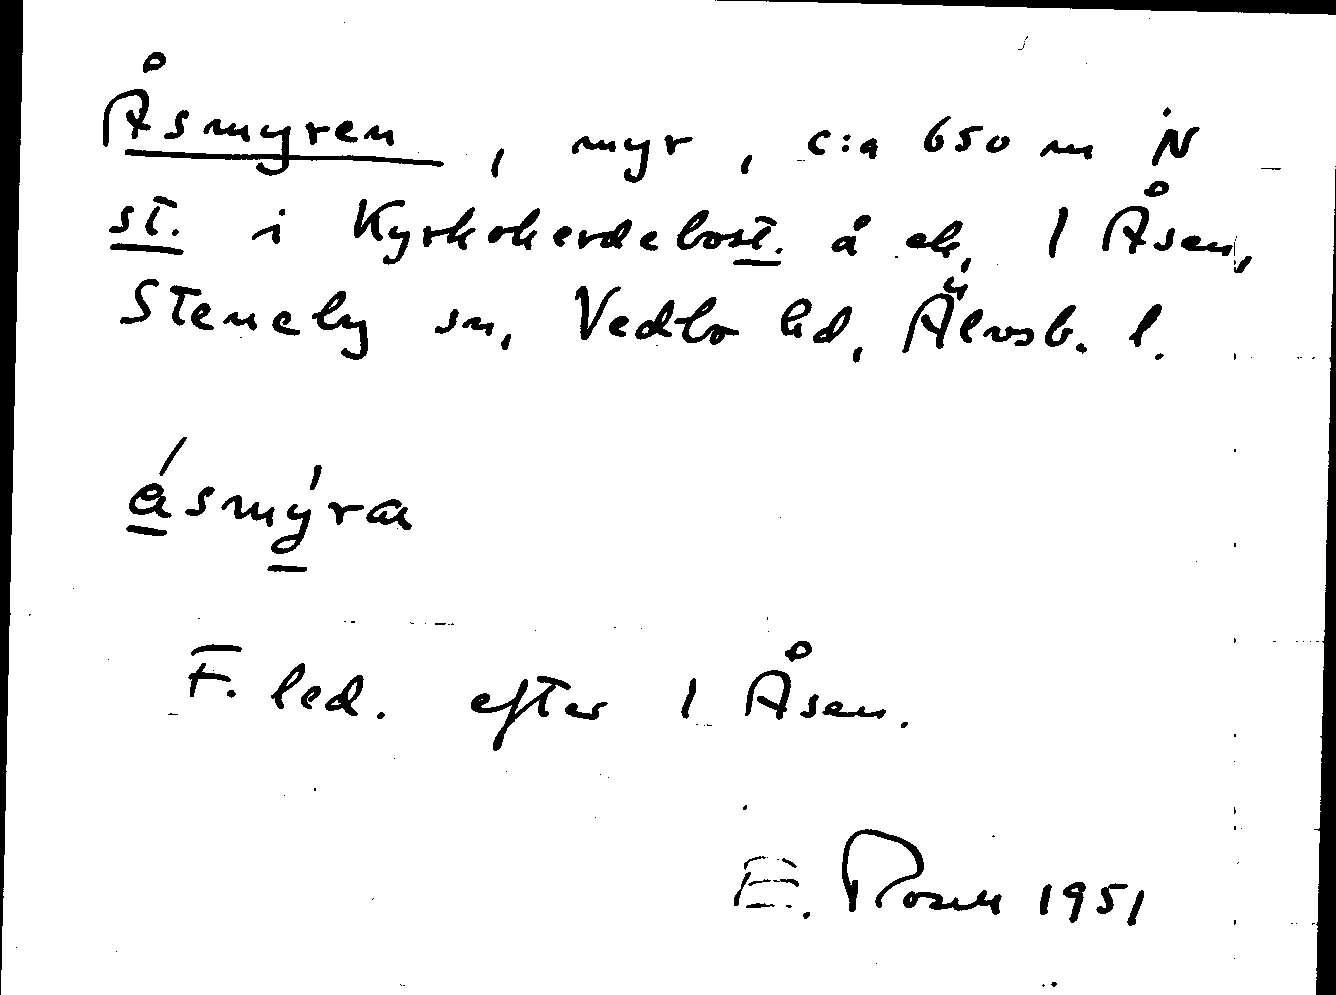 Åsmyren, myr, c:a 650 m N
st. i Kyrkoherdebost. å ek, 1 Åsen,
Steneby sn, Vedbo hd, Älvsb. l.
ásmýra
F. led. efter 1 Åsen.
E. Rosell 1951